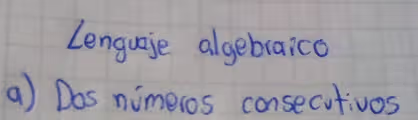 Lenguaje algebraico
a) Dos números consecutivos